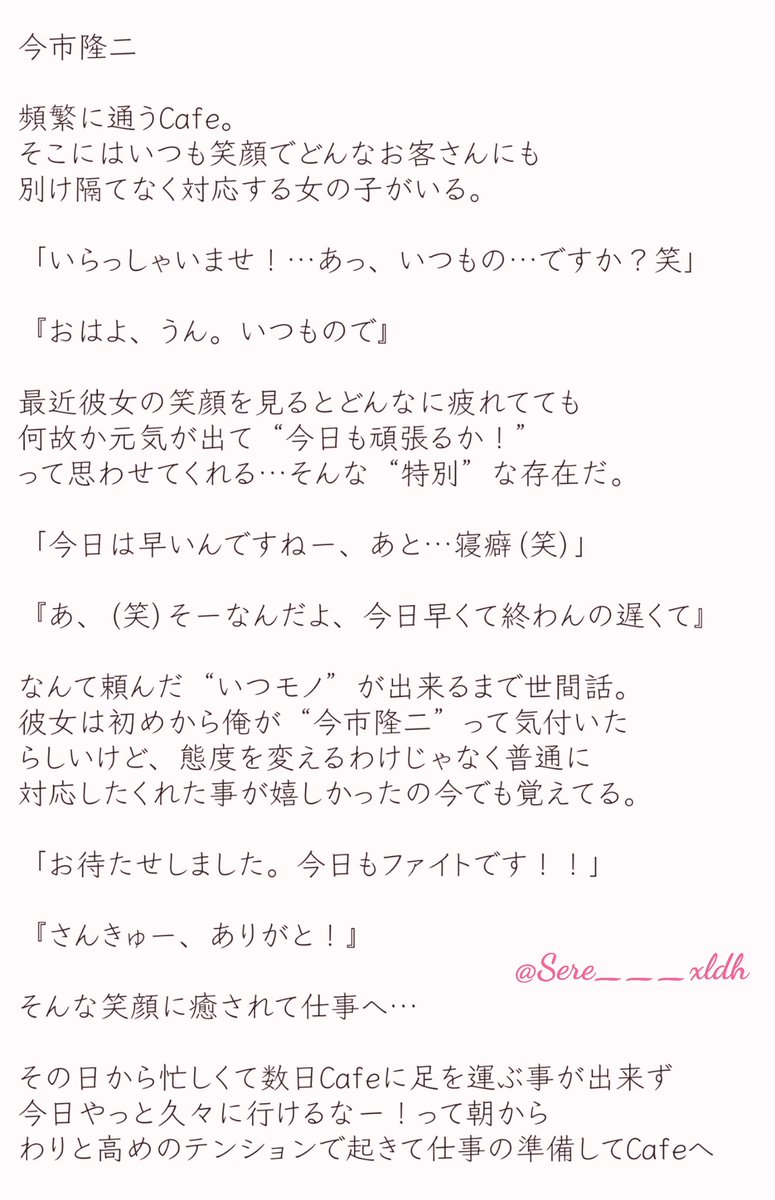 今市隆二
頻繁に通うCafe。
そこにはいつも笑顔でどんなお客さんにも
別け隔てなく対応する女の子がいる。
「いらっしゃいませ！…あっ、いつもの…ですか？笑」
『おはよ、うん。いつもので』
最近彼女の笑顔を見るとどんなに疲れてても
何故か元気が出て“今日も頑張るか！”
って思わせてくれる…そんな“特別”な存在だ。
「今日は早いんですねー、あと…寝癖(笑)」
『あ、(笑)そーなんだよ、今日早くて終わんの遅くて』
なんて頼んだ“いつモノ”が出来るまで世間話。
彼女は初めから俺が“今市隆二”って気付いた
らしいけど、態度を変えるわけじゃなく普通に
対応したくれた事が嬉しかったの今でも覚えてる。
「お待たせしました。今日もファイトです！！」
『さんきゅー、ありがと！』
@Sere___xldh
そんな笑顔に癒されて仕事へ…
その日から忙しくて数日Cafeに足を運ぶ事が出来ず
今日やっと久々に行けるなー！って朝から
わりと高めのテンションで起きて仕事の準備してCafeへ